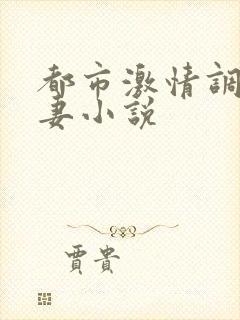 都市激情調
妻小說
賈貴